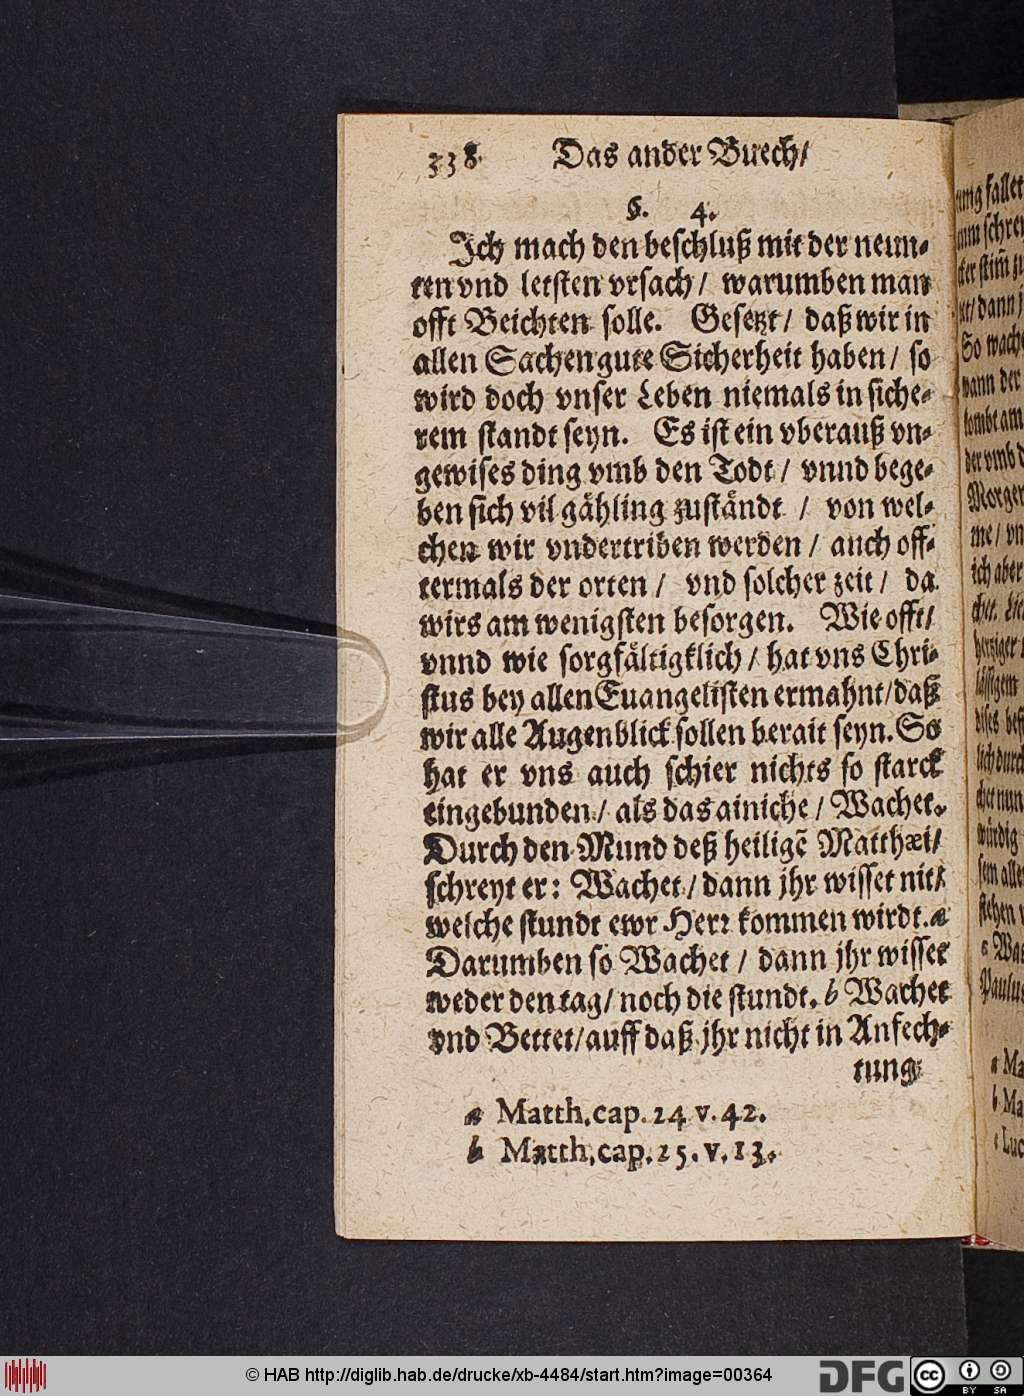 338 Das ander Buech/
§. 4.
Ich mach den beschluß mit der neun-
ten vnd letsten vrsach / warumben man
offt Beichten solle. Gesetzt / daß wir in
allen Sachen gute Sicherheit haben / so
wird doch vnser Leben niemals in siche-
rem standt seyn. Es ist ein vberauß vn-
gewises ding vmb den Todt / vnnd bege-
ben sich vil gähling zuständt / von wel-
chen wir vndertriben werden / auch off-
termals der orten / vnd solcher zeit / da
wirs am wenigsten besorgen. Wie offt/
vnnd wie sorgfältigklich / hat vns Chri-
stus bey allen Euangelisten ermahnt/daß
wir alle Augenblick sollen berait seyn. So
hat er vns auch schier nichts so starck
eingebunden / als das ainiche / Wachet.
Durch den Mund deß heiligē Matthæi/
schreyt er: Wachet / dann jhr wisset nit/
welche stundt ewr Herr kommen wirdt. a
Darumben so Wachet / dann jhr wisset
weder den tag / noch die stundt. b Wachet
vnd Bettet/auff daß jhr nicht in Anfech-
tung
a Matth. cap. 24 v. 42.
b Matth. cap. 25. v. 13.
© HAB http://diglib.hab.de/drucke/xb-4484/start.htm?image=00364
DFG
cc
BY SA